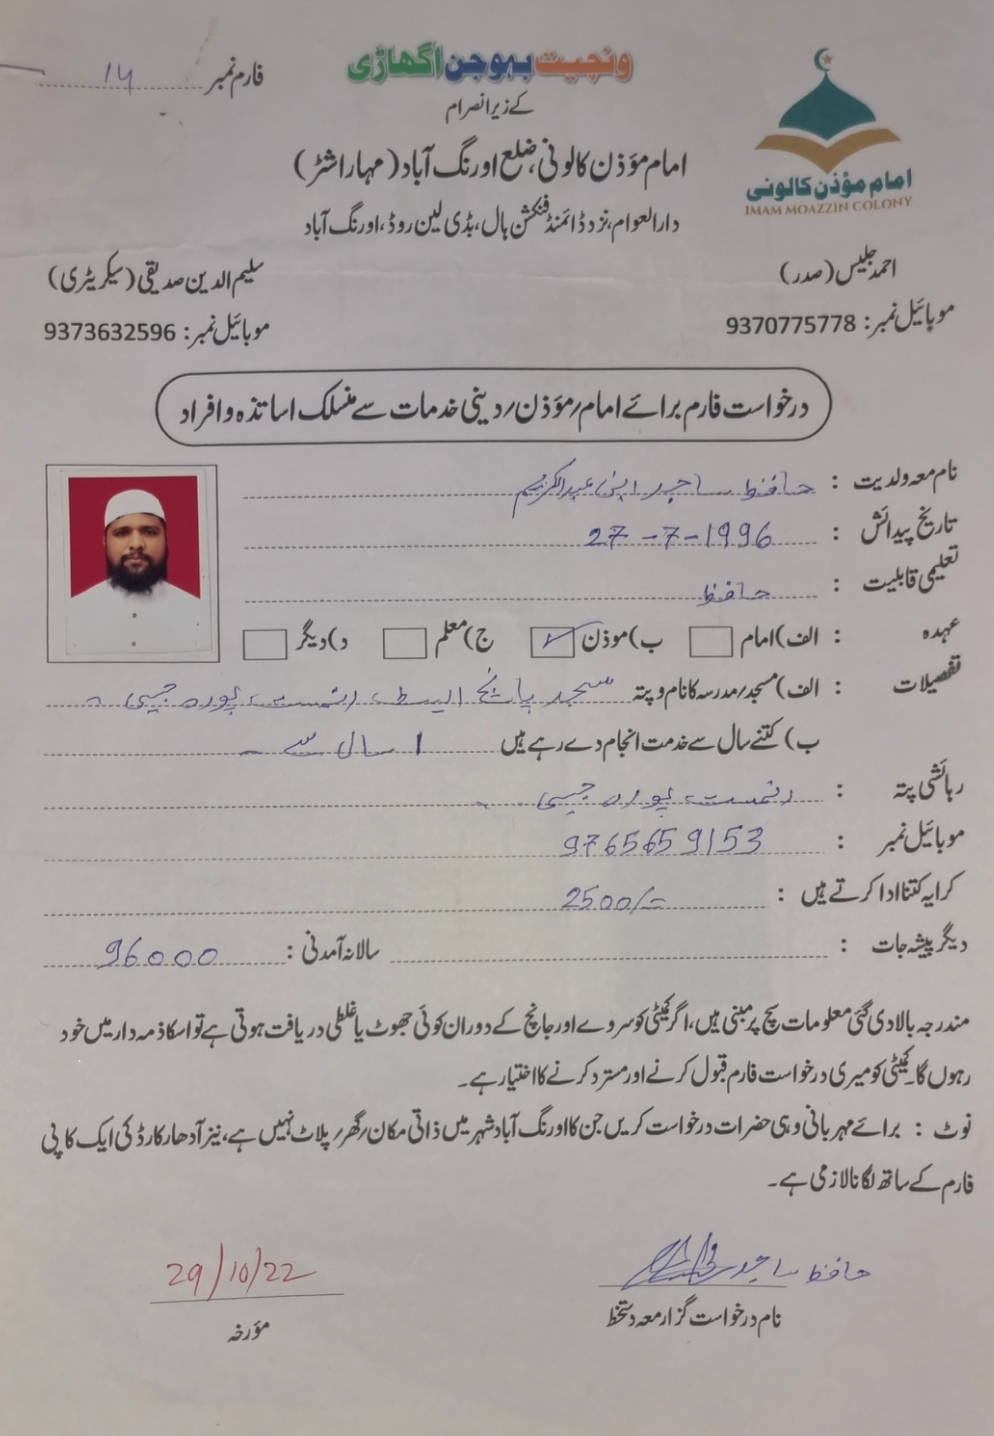 ونچیت بہوجن اگھاڑی
فارم نمبر 14
کے زیر انصرام
امام مؤذن کالونی، ضلع اورنگ آباد (مہاراشٹر)
امام مؤذن کالونی
IMAM MOAZZIN COLONY
دارالعوام، نزد ڈائمنڈ فنکشن ہال، بڈی لین روڈ، اورنگ آباد
احمد جلیس (صدر)
سلیم الدین صدیقی (سیکریٹری)
موبائیل نمبر: 9370775778
موبائیل نمبر: 9373632596
درخواست فارم برائے امام / مؤذن / دینی خدمات سے منسلک اساتذہ و افراد
نام معہ ولدیت : حافظ ساجد ابن عبدالکریم
تاریخ پیدائش : 27-7-1996
تعلیمی قابلیت : حافظ
عہدہ : الف) امام ب) موذن ج) معلم د) دیگر
تفصیلات : الف) مسجد / مدرسہ کا نام و پتہ مسجد پانچ پورہ
ب) کتنے سال سے خدمت انجام دے رہے ہیں 1 سال سے
رہائشی پتہ : پورہ
موبائیل نمبر : 9765659153
کرایہ کتنا ادا کرتے ہیں : 2500/=
دیگر پیشہ جات : سالانہ آمدنی : 96000
مندرجہ بالا دی گئی معلومات سچ پر مبنی ہیں، اگر کمیٹی کو سروے اور جانچ کے دوران کوئی جھوٹ یا غلطی دریافت ہوتی ہے تو اسکا ذمہ دار میں خود
رہوں گا۔ کمیٹی کو میری درخواست فارم قبول کرنے اور مسترد کرنے کا اختیار ہے۔
نوٹ : برائے مہربانی وہی حضرات درخواست کریں جن کا اورنگ آباد شہر میں ذاتی مکان / گھر / پلاٹ نہیں ہے، نیز آدھار کارڈ کی ایک کاپی
فارم کے ساتھ لگانا لازمی ہے۔
حافظ ساجد
29/10/22
نام درخواست گزار معہ دستخط
مؤرخہ